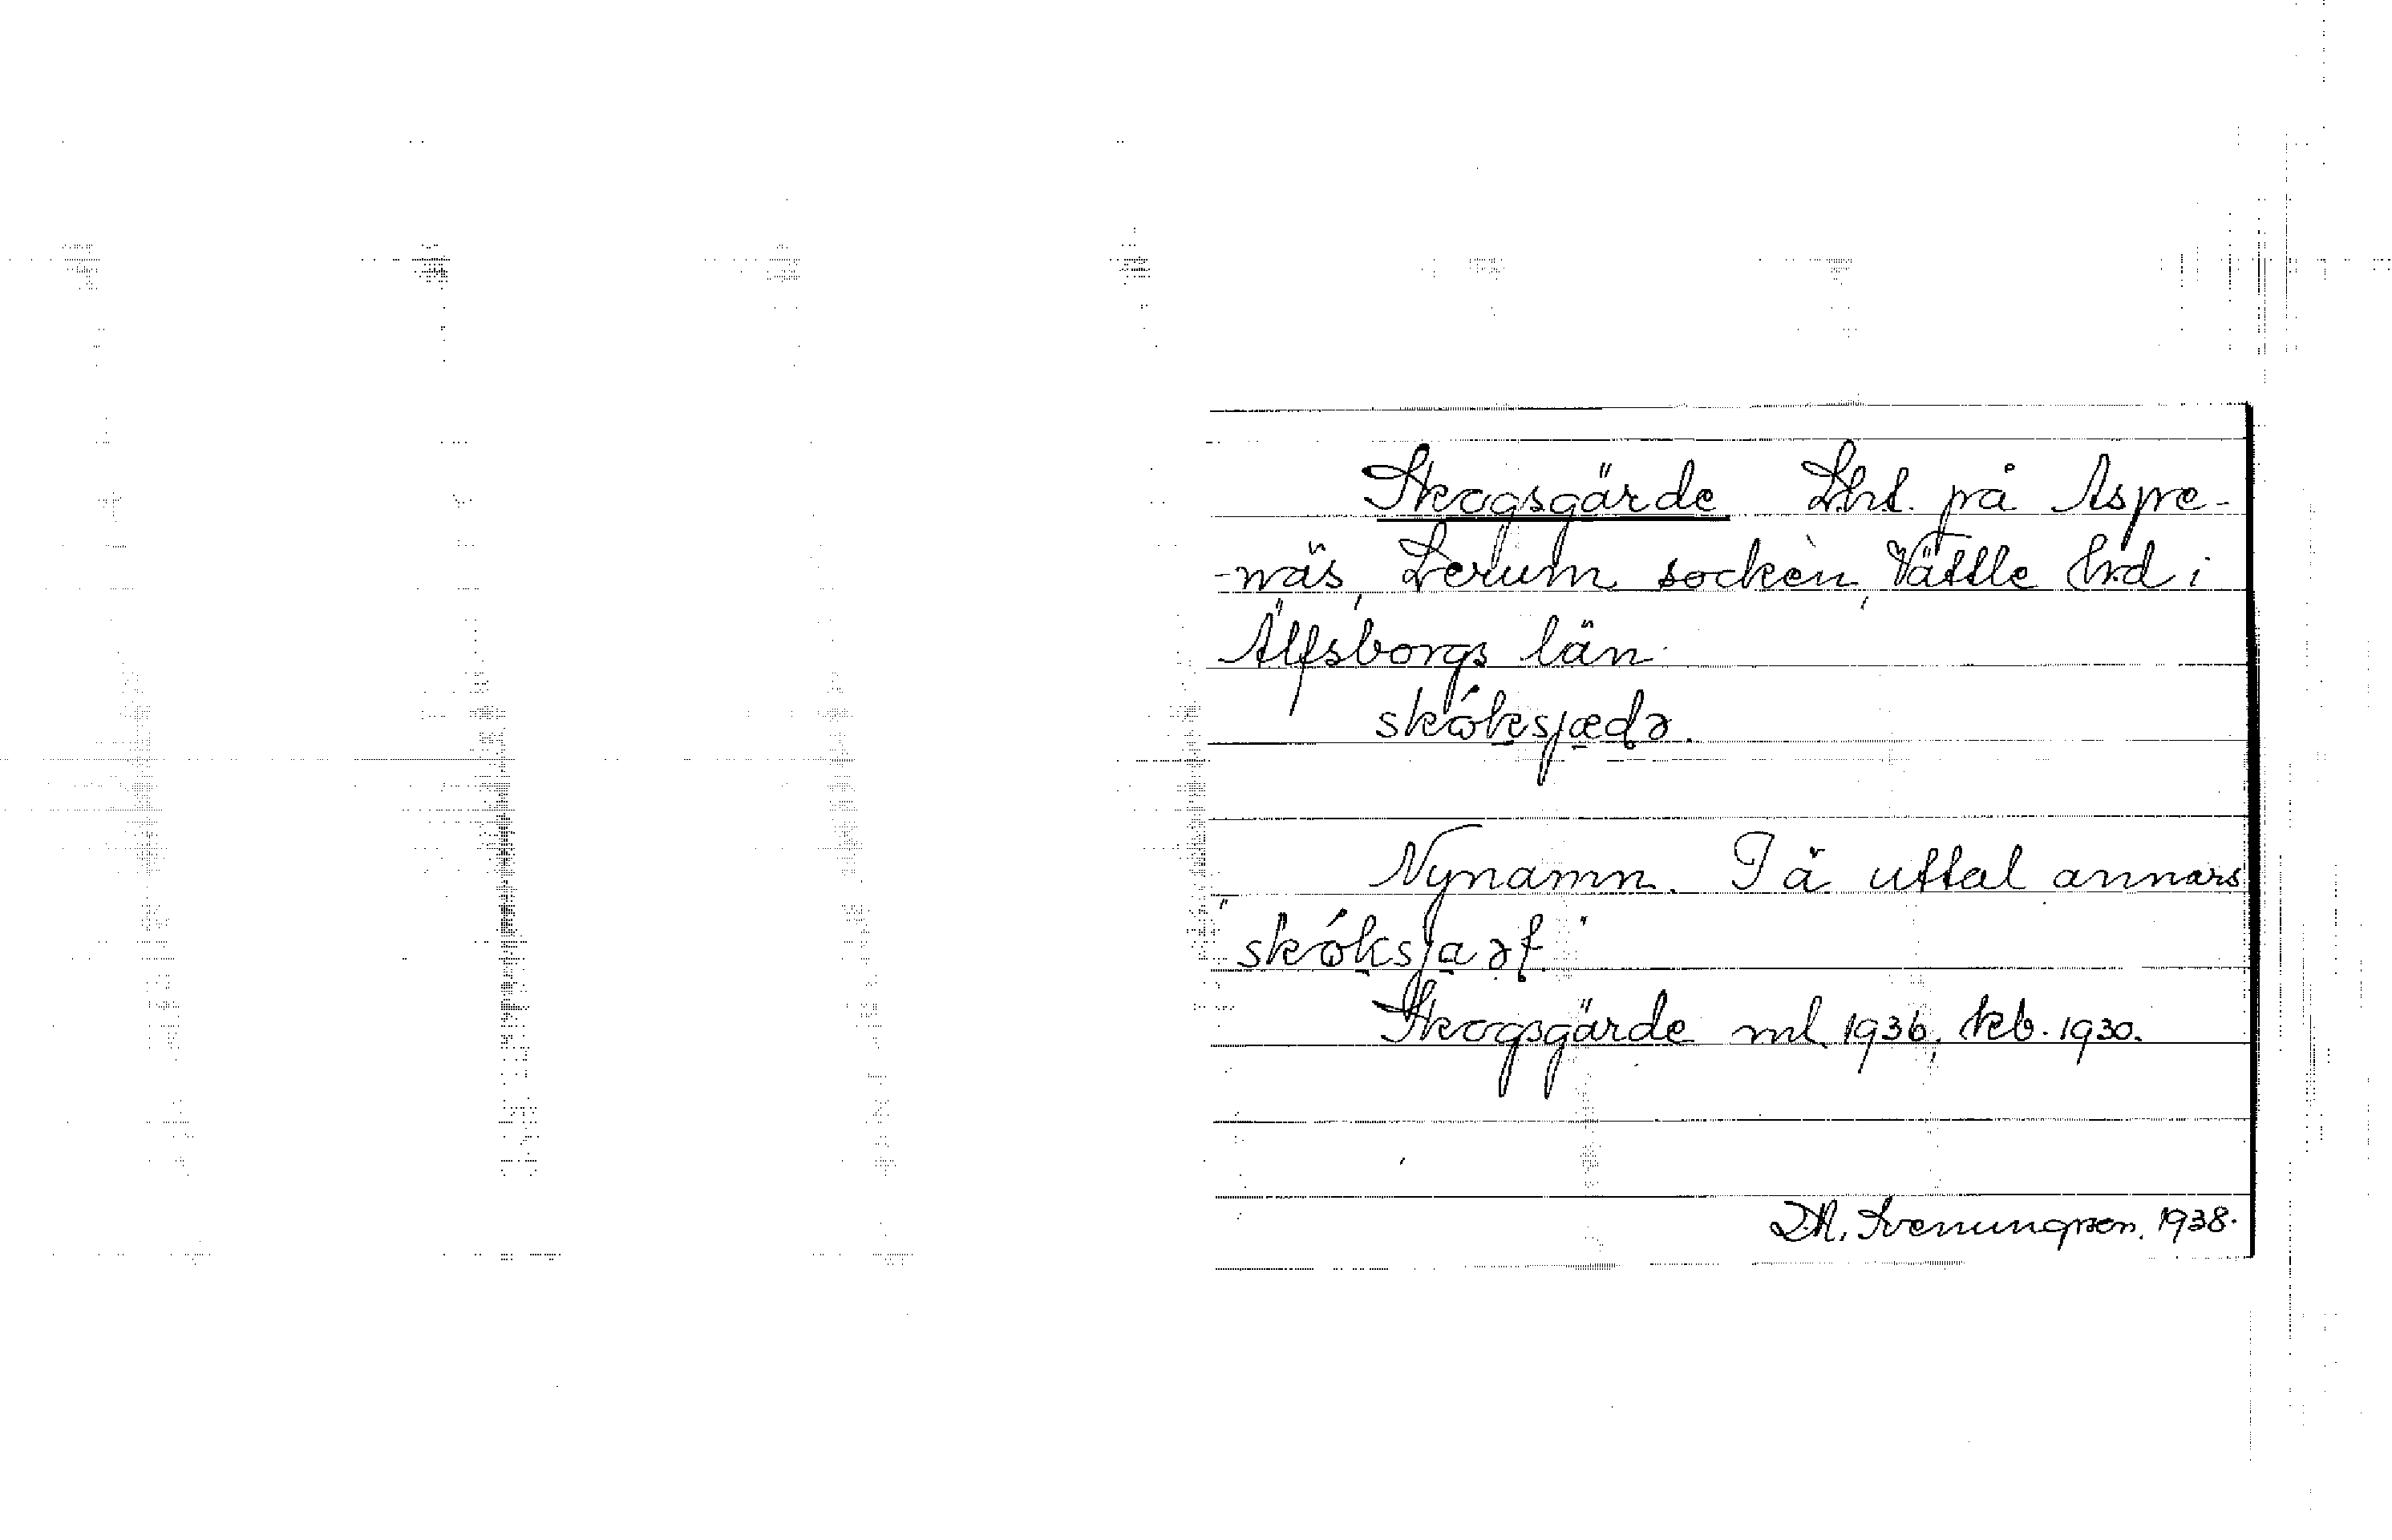 Skogsgärde Lht. på Aspe-
-näs, Lerum socken, Vättle hrd i
Älfsborgs län.
skóksjædə.
Nynamn. I ä uttal annars
"skóksjaəɫ."
Skogsgärde ml. 1936, kb. 1930.
D.A. Svenungsson. 1938.